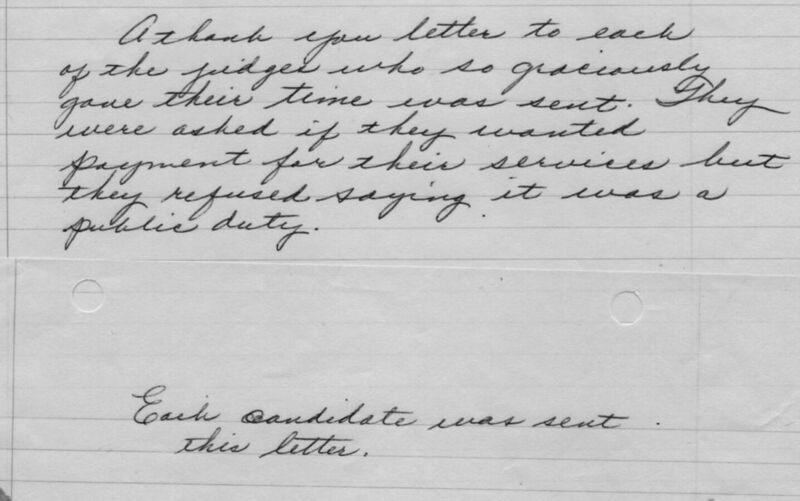 A thank you letter to each
of the judges who so graciously
gave their time was sent. They
were asked if they wanted
payment for their services but
they refused saying it was a
public duty.
Each candidate was sent
this letter.